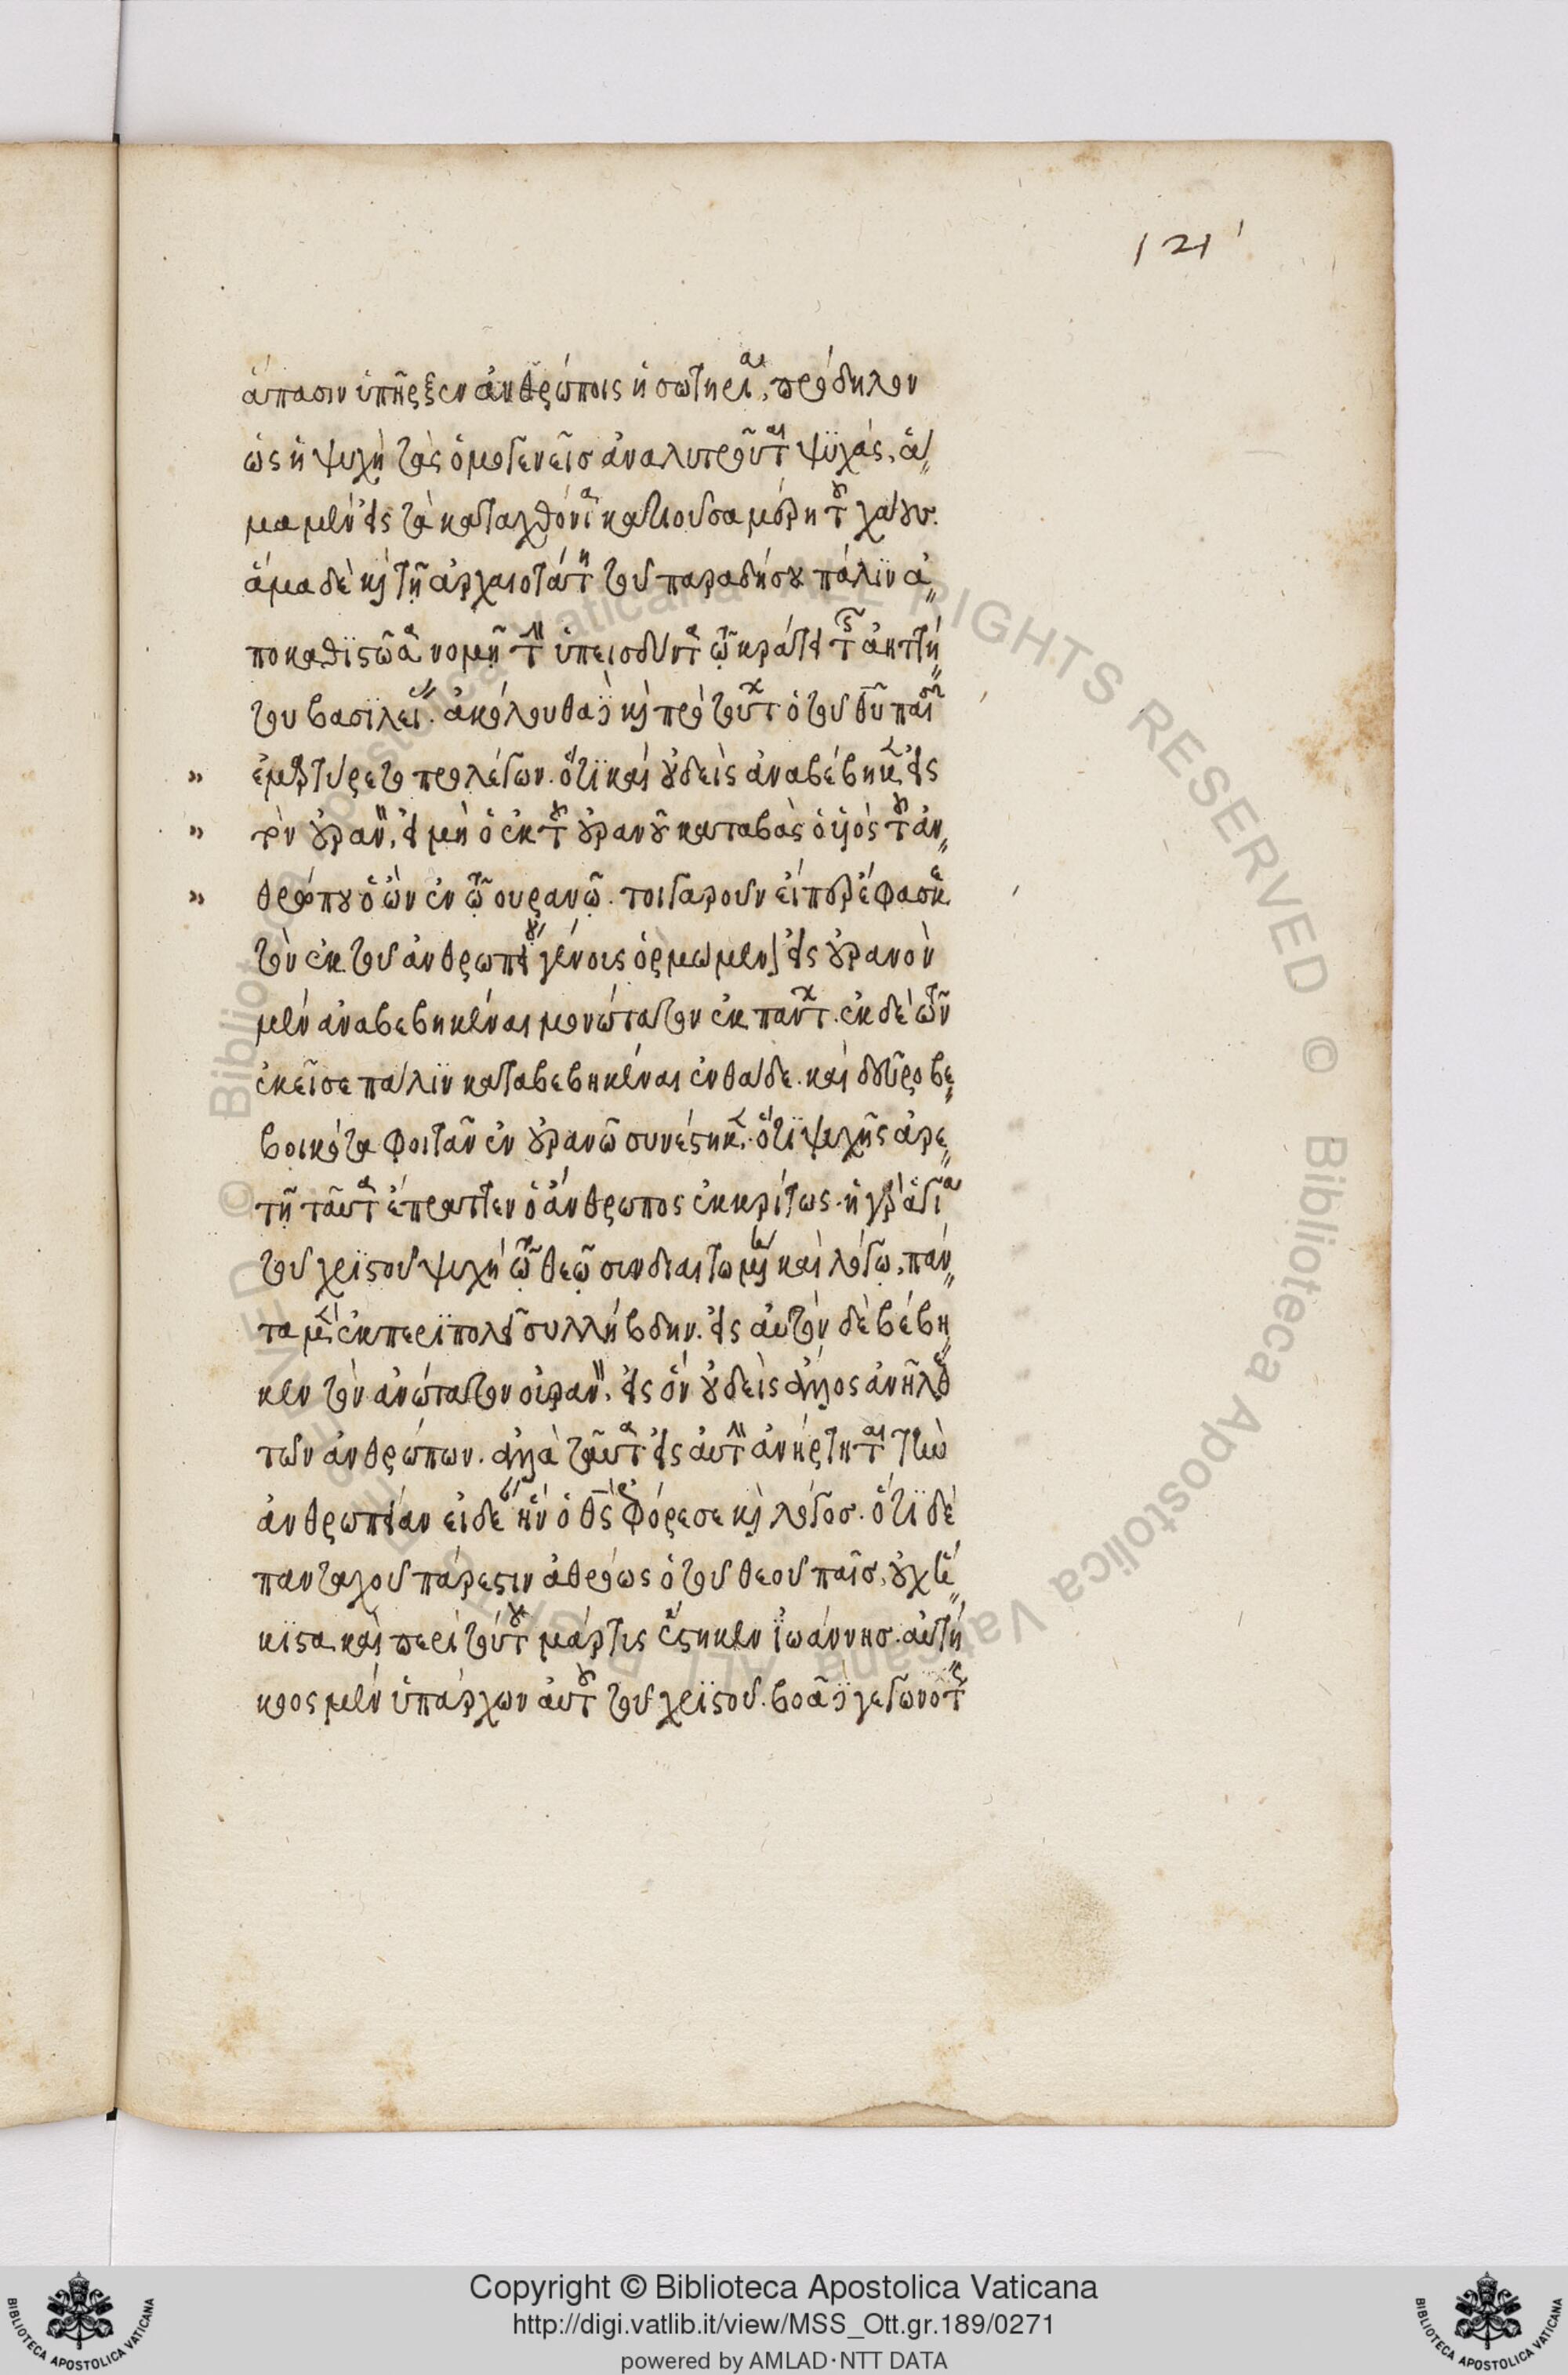 121
ἅπασιν ὑπῆρξεν ἀνθρώποις ἡ σωτηρία, πρόδηλον
ὡς ἡ ψυχὴ τὰς ὁμογενεῖσ ἀναλυτροῦται ψϋχάς, ἅ
μα μὲν εἰς τὰ καταχθόνια κατιοῦσα μέρη τοῦ χάους.
ἅμα δὲ καὶ τῇ ἀρχαιοτάτη τοῦ παραδήσου πάλϊν ἀ
ποκαθϊστῶσα νομῇ τὸν ὑπεισδύντα τῷ κράτει
του βασϊλείου. ἀκόλουθα καὶ πρὸ τοῦ ὁ τοῦ θῦ παῖσ
ἐμαρτύρετο προλέγων. ὅτϊ καὶ οὐδεὶς ἀναβέβηκεν εἰς
τὸν οὐρανὸν, εἰ μὴ ὁ ἐκ τοῦ οὐρανοῦ καταβὰς ὁ υἱὸς τοῦ ἀν
θρώπου ὁ ὢν ἐν τῷ ουρανῷ. τοιγαροῦν εἰπερ ἔφασκε
τὸν ἐκ τοῦ ἀνθρωπείου γένοις ὁρμώμενον εἰς οὐρανὸν
μὲν ἀναβεβηκέναι μονώτατον ἐκ πάντων. ἐκ δὲ τῶν
ἐκεῖσε πάλϊν καταβεβηκέναι ἐνθάδε. καὶ δεῦρο βε
βοικότα φοιτᾶν ἐν οὐρανῶ συνέστηκεν. ὅτϊ ψυχῆς ἀρε
τῇ ταῦτα ἔπραττεν ὁ ἄνθρωπος ἐκκρίτως. ἡ γὰρ ἁγία
τοῦ χρϊστοῦ ψυχὴ τῷ θεῷ συνδιαιτωμένη καὶ λόγῳ, πάν
τα μὲν ἐκπερϊπολεῖ συλλήβδην. εἰς αὐτὸν δὲ βέβη
κεν τὸν ἀνώτατον οὐρανὸν, εἰς ὃν οὐδεὶς ἄλλος ἀνῆλθε
τῶν ἀνθρώπων. ἀλλὰ ταῦτα εἰς αὐτὸν ἀνήρτηται τὴν
ἀνθρωπείαν ἰδέαν ἣν ὁ θς φόρεσε καὶ λόγοσ. ὅτϊ δὲ
πανταχοῦ πάρεστιν ἀθρόως ὁ τοῦ θεοῦ παῖσ, οὐχ
κϊστα καὶ περὶ τούτου μάρτυς ἕστηκεν ϊωάννησ. αὐτή
κοος μὲν ὑπάρχων αὐτοῦ τοῦ χρϊστοῦ.
Copyright © Biblioteca Apostolica Vaticana
http://digi.vatlib.it/view/MSS_Ott.gr.189/0271
powered by AMLAD·NTT DATA